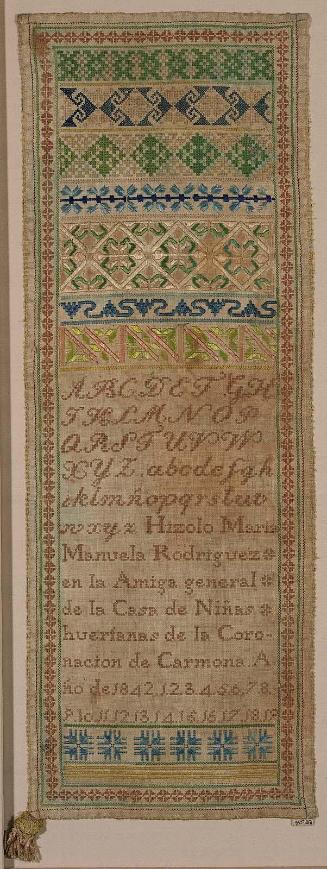 A B C D E F G H
I K L M N O P
Q R S T U V W
X Y Z. a b c d e f g h
i k l m n o p q r s t u v
w x y z Hizolo Maria
Manuela Rodriguez
en la Amiga general
de la Casa de Niñas
huerfanas de la Coro-
nacion de Carmona. A
ño de 1842. 1. 2. 3. 4. 5. 6. 7. 8.
9. 10. 11. 12. 13. 14. 15. 16. 17. 18. 19